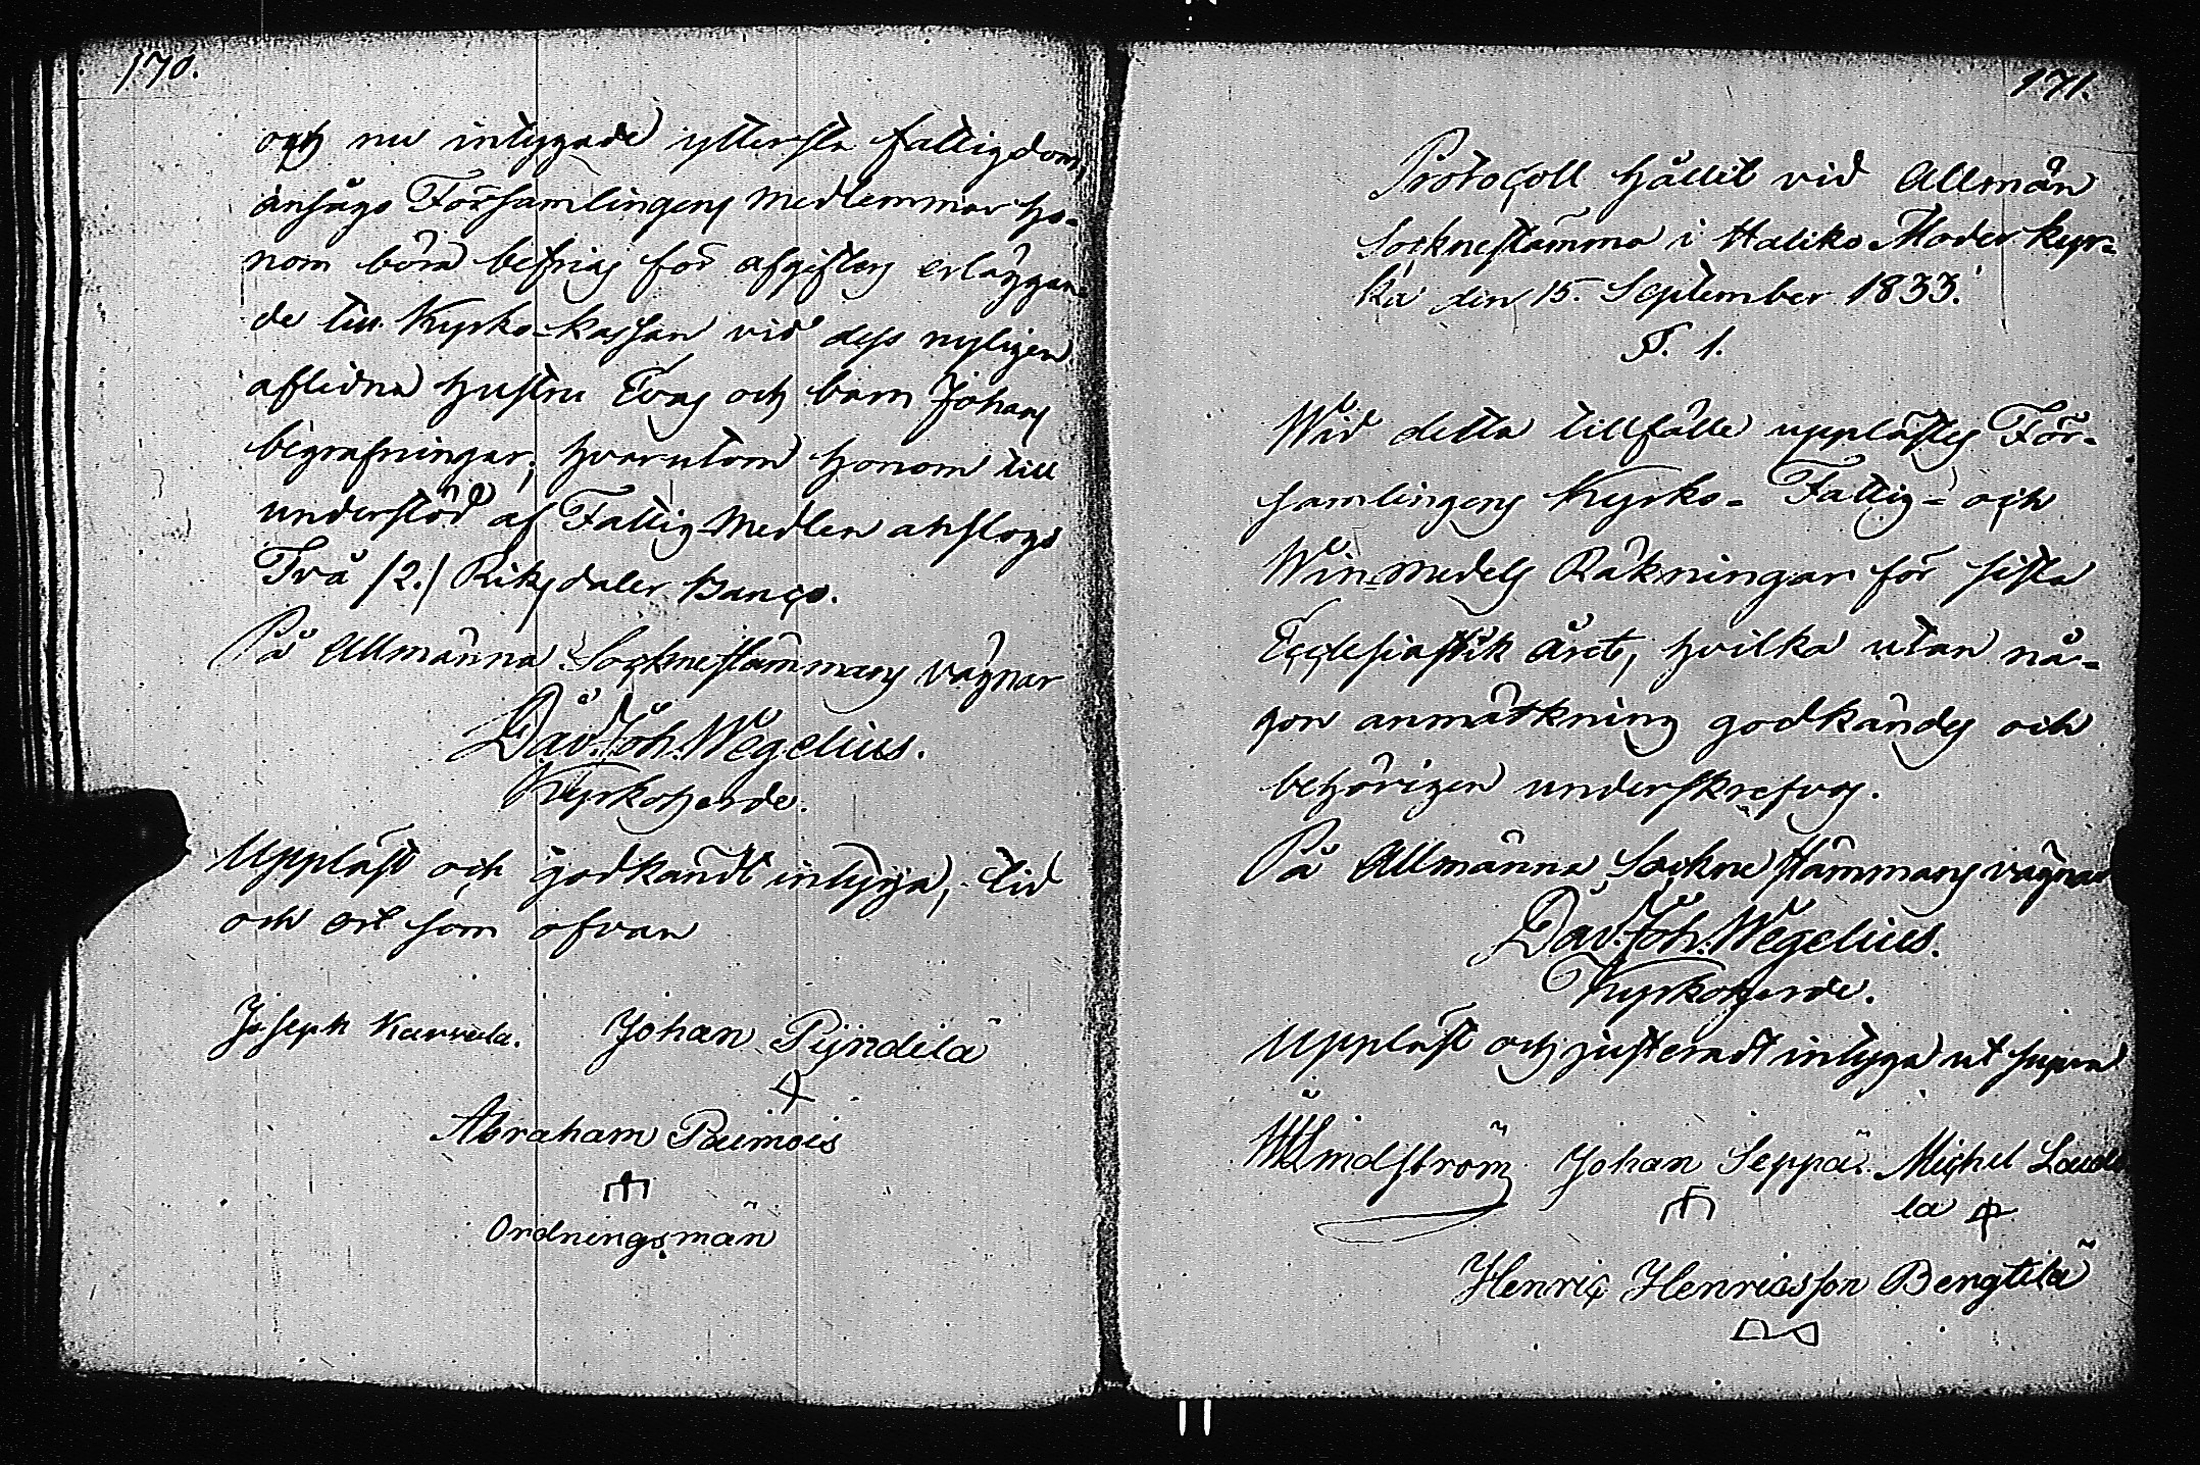 170.
och nu intygade yttersta fattigdom,
ansågo Församlingens Medlemmar ho-
nom böra befrias för afgiftens erläggan-
de till Kyrko-kassan vid dess nyligen
aflidna hustru Evas och barn Johans
begrafningar; hvarutom honom till
understöd af Fattig-Medlen anslogs
Två /2./ Riksdaler Banco.
På Allmänna Socknestämmans vägnar
Dav. Joh. Wegelius.
Kyrkoherde.
Uppläst och godkändt intyga, tid
och ort som ofvan
Joseph Karvela. Johan Pijndilä
Abraham Paimois
Ordningsmän
171.
Protocoll hållit vid Allmän
Socknestämma i Haliko Moderkyr-
ka den 15. September 1833.
§. 1.
Wid detta tillfälle upplästes För-
samlingens Kyrko- Fattig- och
Win-medels Räkningar för sista
Ecclesiastik året, hvilka utan nå-
gon anmärkning godkändes och
behörigen underskrefvos.
På Allmänna Sockne stämmans vägnar
Dav. Joh. Wegelius.
Kyrkoherde.
Uppläst och justeradt intyga ut supra
Lindström Johan Seppä. Michel
la
Henric Henricsson Bergtilä